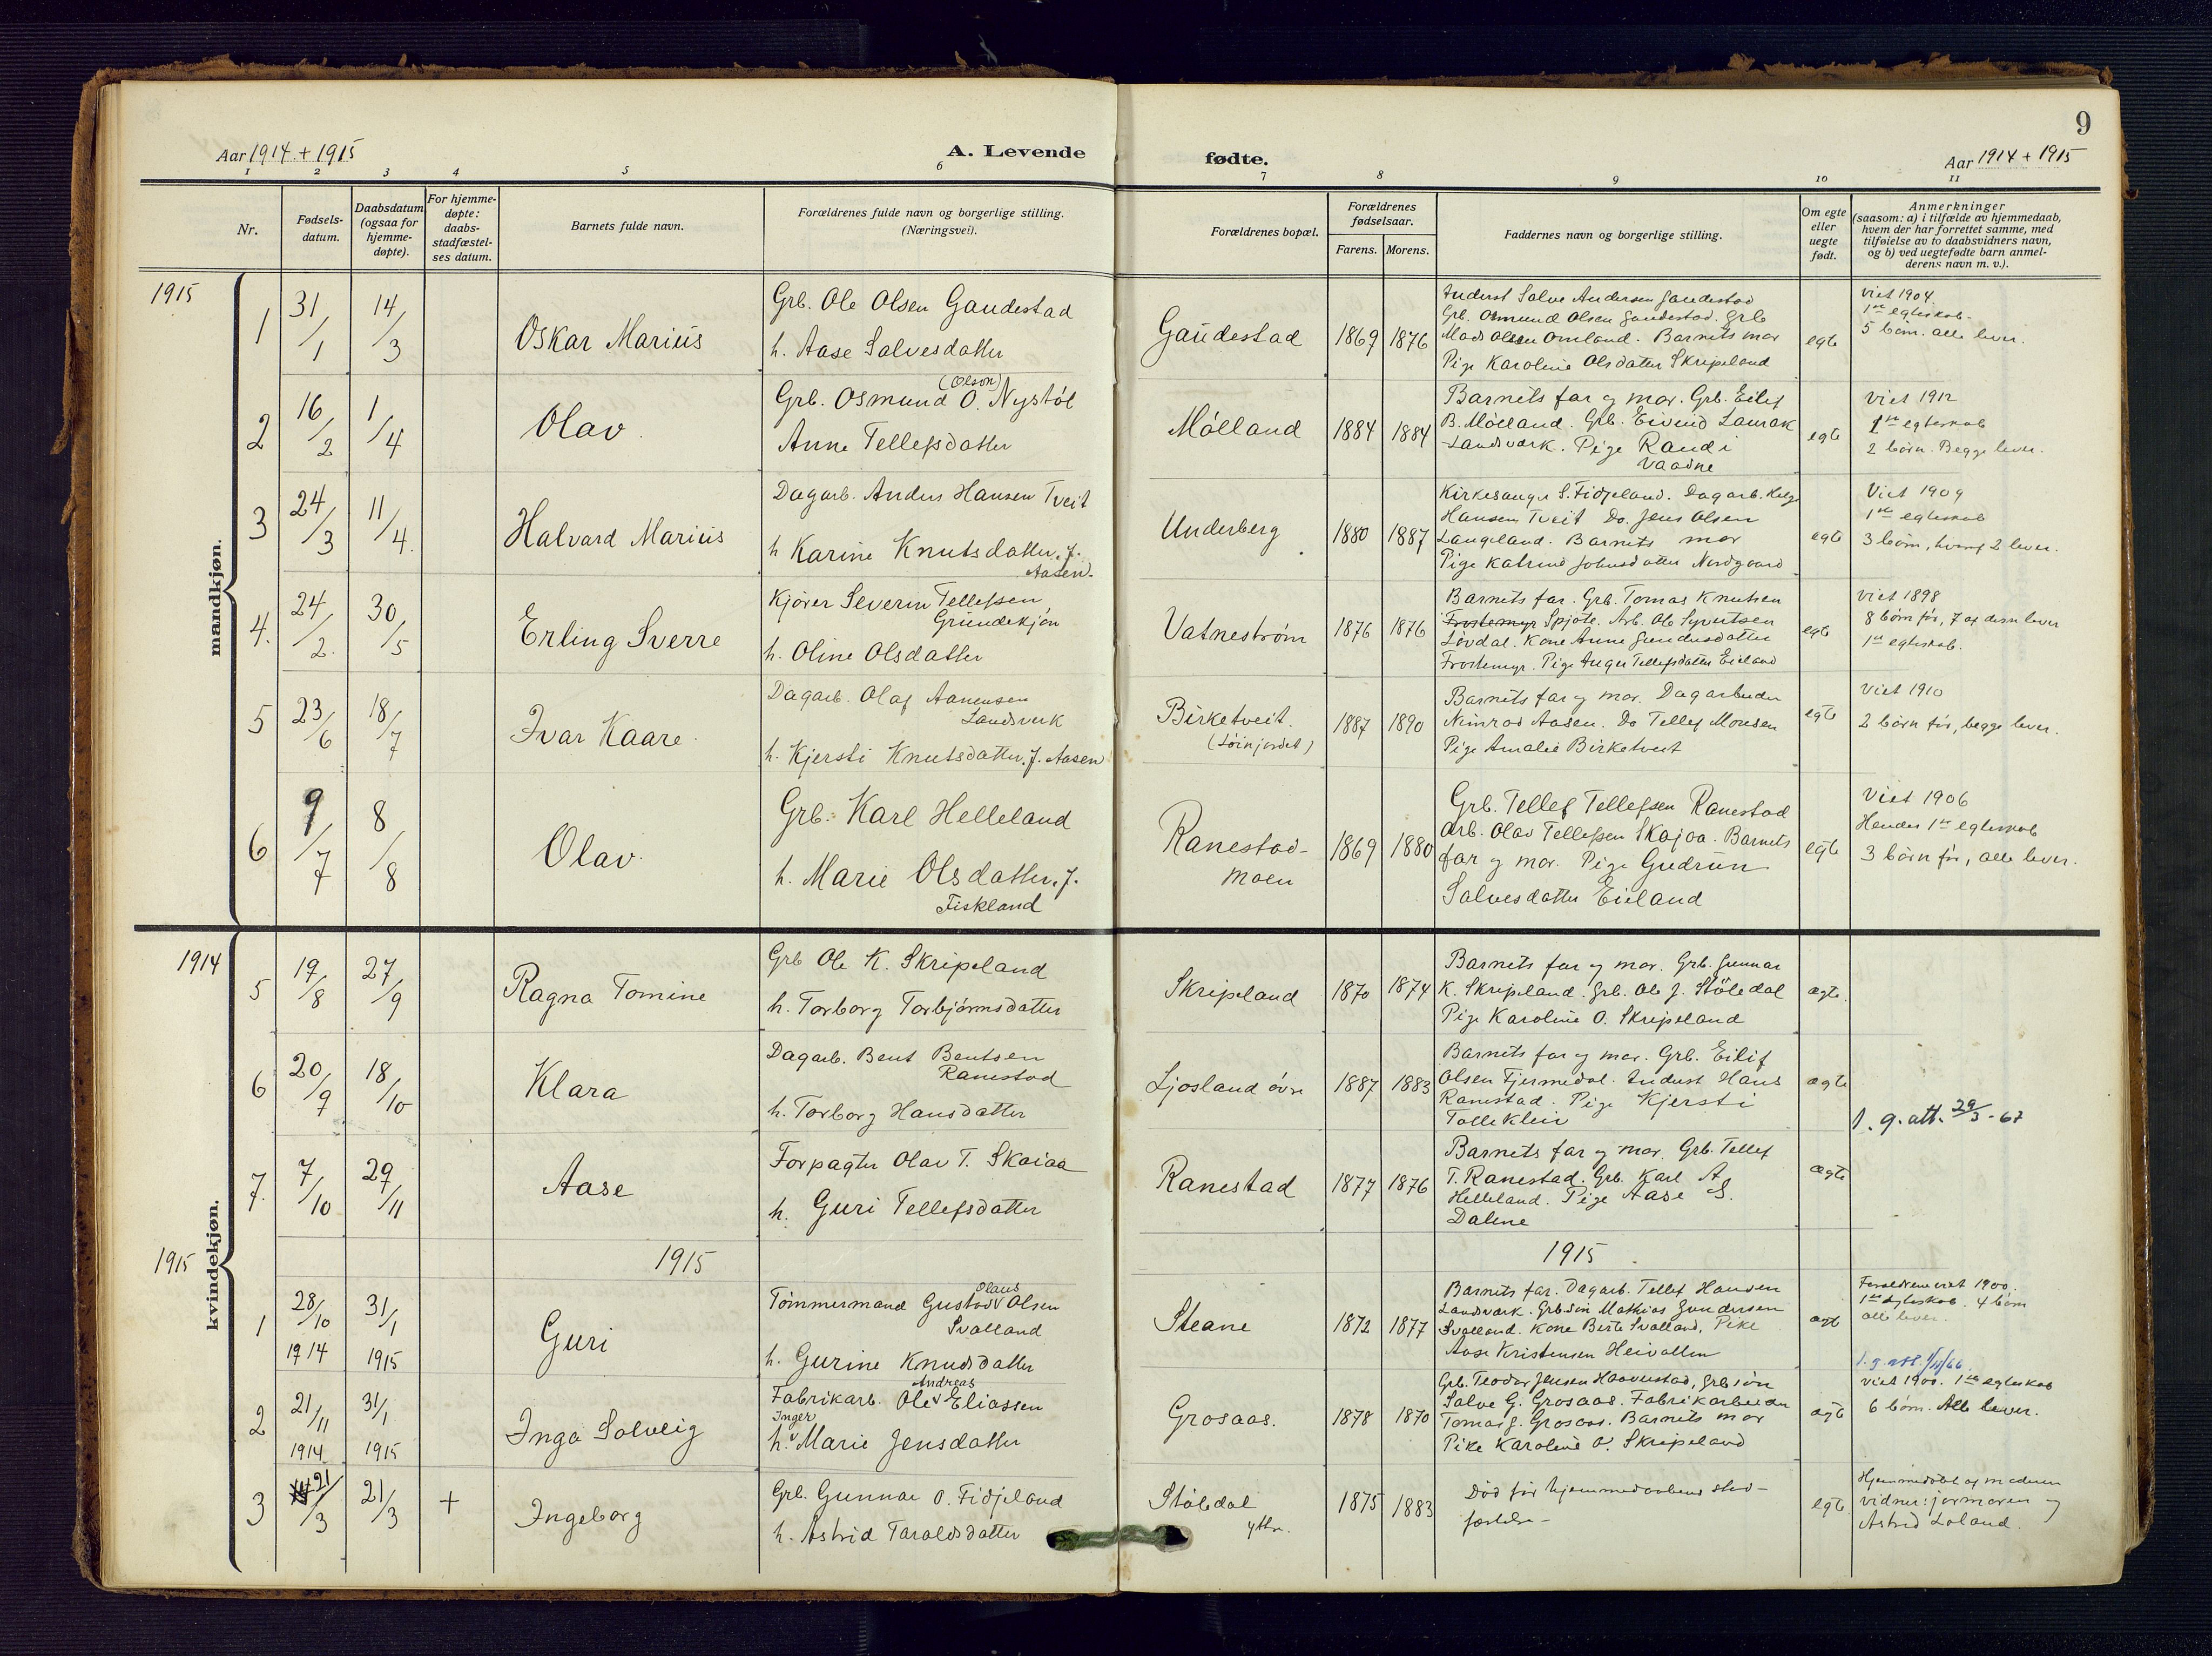 9
Aar 1914 + 1915
A. Levende
fødte.
Aar 1914 + 1915
1 2 3 4 5 6 7 8 9 10 11
Nr.
Fødsels-
datum.
Daabsdatum
(ogsaa for
hjemme-
døpte).
For hjemme-
døpte:
daabs-
stadfæstel-
ses datum.
Barnets fulde navn.
Forældrenes fulde navn og borgerlige stilling.
(Næringsvei).
Forældrenes bopæl.
Forældrenes
fødselsaar.
Farens. Morens.
Faddernes navn og borgerlige stilling.
Om egte
eller
uegte
født.
Anmerkninger
(saasom: a) i tilfælde av hjemmedaab,
hvem der har forrettet samme, med
tilføielse av to daabsvidners navn,
og b) ved uegtefødte barn anmel-
derens navn m. v.).
mandkjøn.
1915
1
31/1
14/3
Oskar Marius
Grb. Ole Olsen Gaudestad
h. Aase Salvesdatter
Gaudestad
1869 1876
Inderst Salve Andersen Gaudestad
Grb. Osmund Olsen Gaudestad. Grb
Mads Olsen Omland. Barnets mor
Pige Karoline Olsdatter Skripeland
egte
Viet 1904.
1ste egteskab.
5 børn. alle lever.
2
16/2
1/4
Olav
Grb. Osmund O. (Olson) Nystøl
Anne Tellefsdatter
Mølland
1884 1884
Barnets far og mor. Grb. Eilef
B. Mølland. Grb. Eivind Laurak
Landsverk. Pige Randi
Vaadne
egte
Viet 1912
1ste egteskab
2 børn. Begge lever.
3
24/3
11/4
Halvard Marius
Dagarb. Anders Hansen Tveit
h Karine Knutsdatter. f.
Aasen.
Underberg
1880 1887
Kirkesanger S. Fidjeland. Dagarb. Helge
Hansen Tveit Do. Jens Olsen
Langeland. Barnets mor
Pige Katrine Johnsdatter Nordgaard
egte
Viet 1909
1ste egteskab
3 børn, hvoraf 2 lever.
4.
24/2.
30/5
Erling Sverre
Kjører Severin Tellefsen
Grundekjøn
h. Oline Olsdatter
Vatnestrøm
1876 1876
Barnets far. Grb. Tomas Knutsen
Frostemyr Spjote. Arb. Ole Syvertsen
Løvdal. Kone Anne Gundersdatter
Frostemyr. Pige Inger Tellefsdatter Eieland
egte
Viet 1898
8 børn før, 7 af dem lever
1ste egteskab.
5
23/6
18/7
Ivar Kaare
Dagarb. Olaf Aanensen
Landsverk
h. Kjersti Knutsdatter. f. Aasen
Birketveit.
1887 1890
Barnets far og mor. Dagarbeider
Nimrod Aasen. Do Tellef Monsen
Pige Amalie Birketveit
egte
Viet 1910
2 børn før, begge lever.
6
9/7
8/8
Olav
Grb. Karl Helleland
h. Marie Olsdatter. f.
Fiskland
Ranestad-
moen
1869 1880
Grb. Tellef Tellefsen Ranestad
Arb. Olav Tellefsen Skajaa. Barnets
far og mor. Pige Gudrun
Salvesdatter Eieland
egte
Viet 1906
Hendes 1ste egteskab
3 børn før, alle lever.
kvindekjøn.
1914
5
19/8
27/9
Ragna Tomine
Grb Ole K. Skripeland
h. Torborg Torbjørnsdatter
Skripeland
1870 1874
Barnets far og mor. Grb. Gunnar
K. Skripeland. Grb. Ole J. Støledal
Pige Karoline O. Skripeland
ægte
6
20/9
18/10
Klara
Dagarb. Bent Bentsen
Ranestad
h. Torborg Hansdatter
Ljosland øvre
1887 1883
Barnets far og mor. Grb. Eilif
Olsen Fjermedal. Inderst Hans
Ranestad. Pige Kjersti
Tolleklein
ægte
1. g. att. 29/3-67
7.
7/10
29/11
Aase
Forpagter Olav T. Skaiaa
h. Guri Tellefsdatter
Ranestad
1877 1876
Barnets far og mor. Grb. Tellef
T. Ranestad. Grb. Karl A.
Helleland. Pige Aase S.
Dalene
ægte
1915 1915 1915
1
28/10
1914
31/1
1915
Guri
Tømmermand Gustav Olaus Olsen
Svalland
h. Gurine Knudsdatter
Steane
1872 1877
Barnets far. Dagarb. Tellef Hansen
Landsverk. Grb.søn Mathias Gundersen
Svalland. Kone Berte Svalland, Pike
Aase Kristensen Heivollen
ægte
Forældrene viet 1900.
1ste egteskab. 4 børn
alle lever.
2
21/11
1914
31/1
1915
Inga Solveig
Fabrikarb. Ole Andreas Eliassen
h. Inger Marie Jensdatter
Grosaas.
1878 1870
Grb. Teodor Jensen Haavrestad, Grb.søn
Salve G. Grosaas. Fabrikarbeider
Tomas G. Grosaas. Barnets mor
Pike Karoline O. Skripeland
ægte
Viet 1900. 1ste egteskab
6 børn. Alle lever.
3
21/3
21/3
+
Ingeborg
Grb. Gunnar O. Fidjeland
h. Astrid Taraldsdatter
Støledal
ytre.
1875 1883
Død før hjemmedaabens stad-
fæstelse-
egte
Hjemmedøbt af moderen
vidner: jormoren og
Astrid Loland.